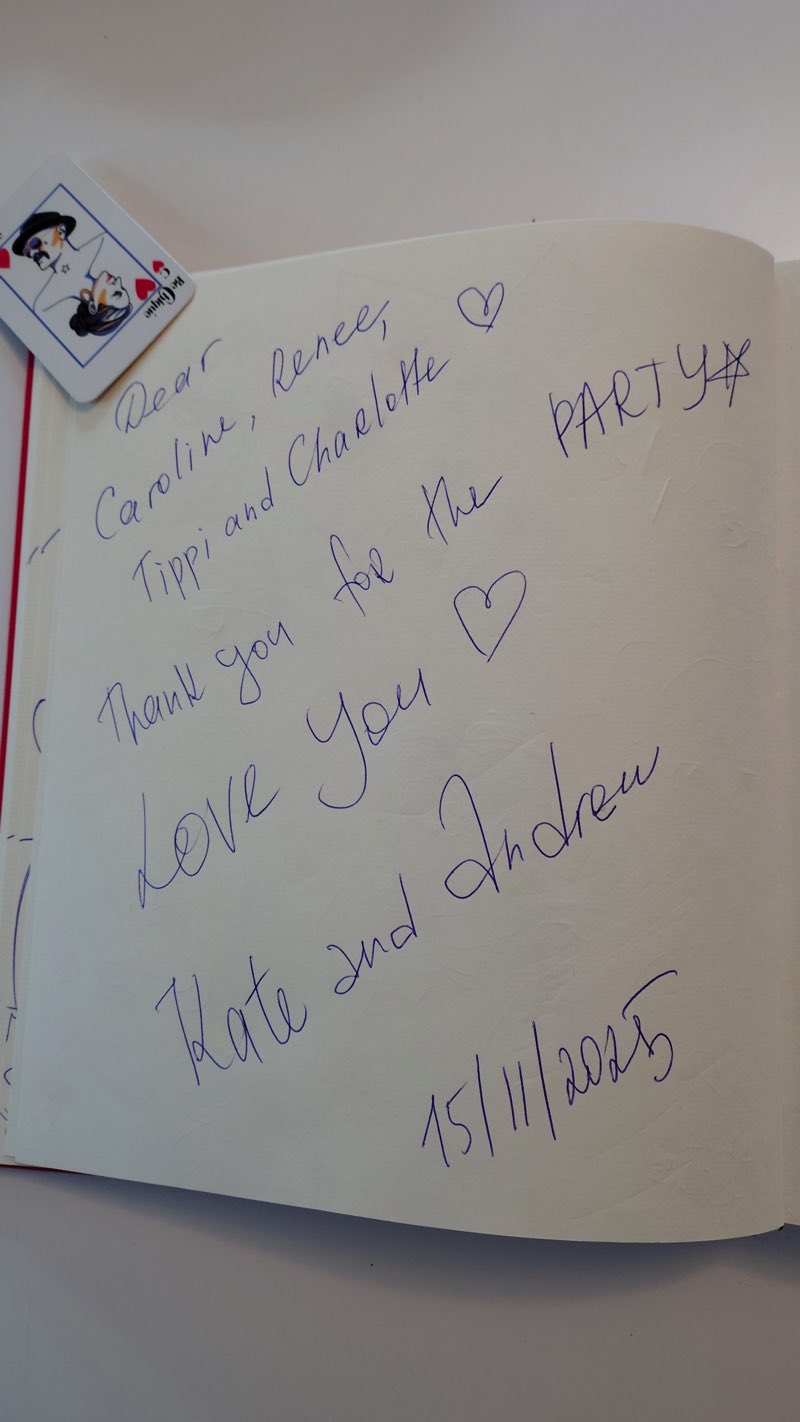 Be Chique
Dear
Caroline, Renee,
Tippi and Charlotte ♡
Thank you for the PARTY☆
Love you ♡
Kate and Andrew
15/11/2025